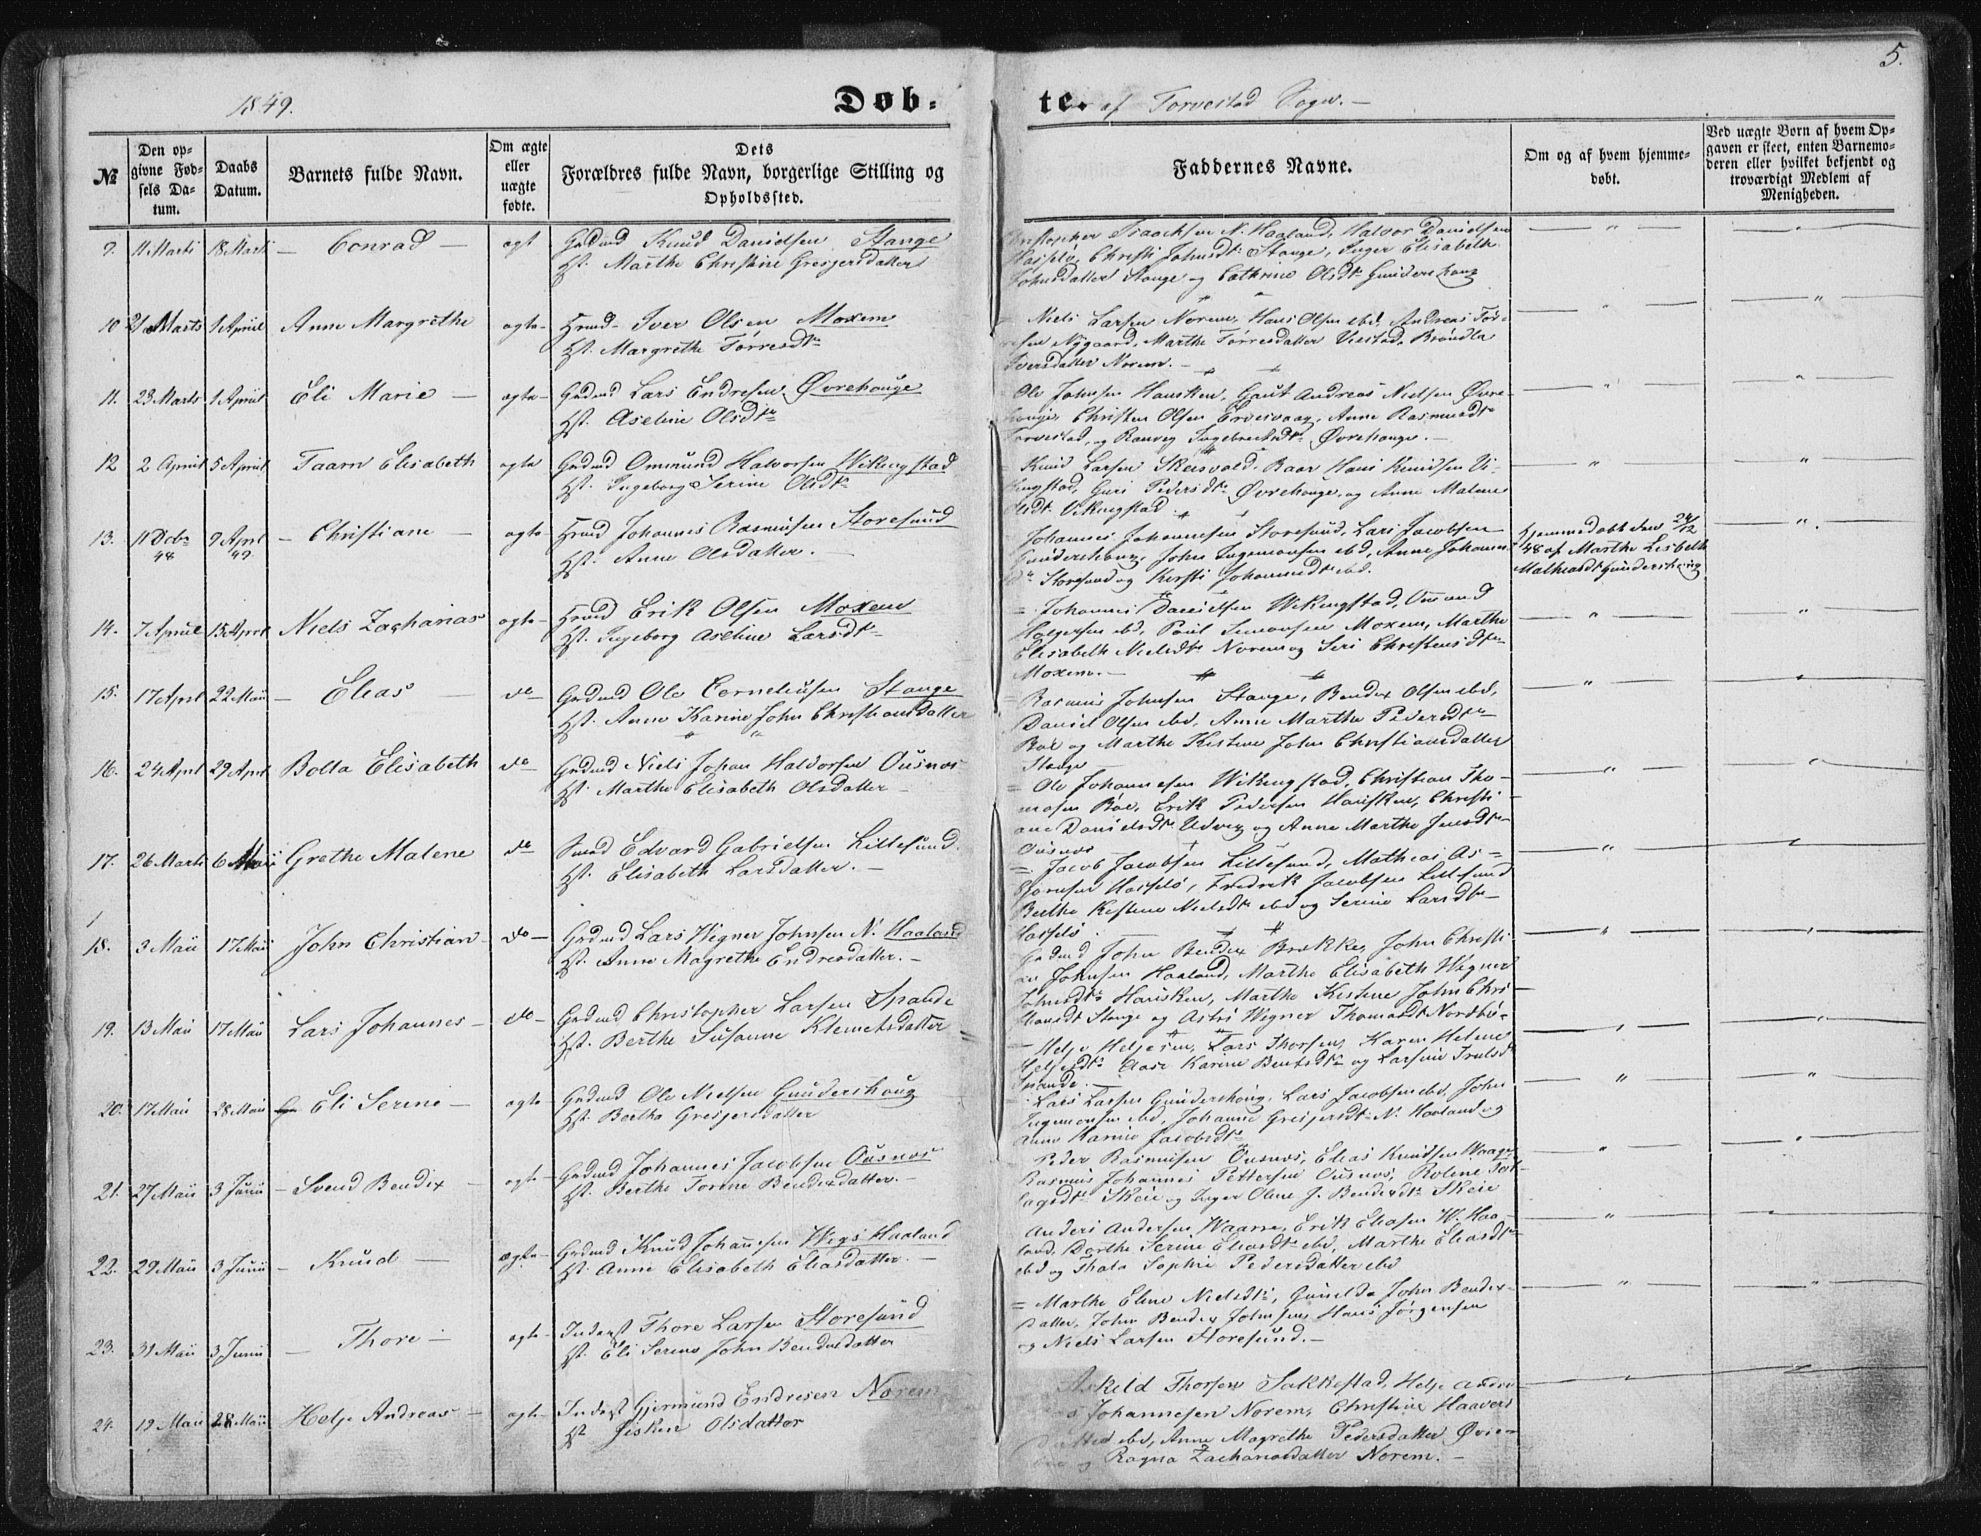 5.
1849.
Døb-
te. af Torvestad Sogn.
№
Den op-
givne Fød-
sels Da-
tum.
Daabs
Datum.
Barnets fulde Navn.
Om ægte
eller
uægte
fødte.
Dets
Forældres fulde Navn, borgerlige Stilling og
Opholdssted.
Faddernes Navne.
Om og af hvem hjemme-
døbt.
Ved uægte Børn af hvem Op-
gaven er skeet, enten Barnemo-
deren eller hvilket bekjendt og
troværdigt Medlem af
Menigheden.
9. 11 Marts 18 Marts Conrad ægt Grdmd Knud Danielsen Stange
Hst. Marthe Christine Gresjersdatter
Christopher Isaachsen N. Haaland, Halvor Danielsen
Hasselø, Christi Johnsdtr Stange, Inger Elisabeth
Johnsdatter Stange og Cathrine Olsdtr Gunderchoug
10 21 Marts 1 April Anne Margrethe ægte Hmd Iver Olsen Moxem
Hst. Margrethe Tørresdtr
Niels Larsen Norem, Hans Olsen ibd, Andreas Tør-
resen Nygaard, Marthe Tørresdatter Viestad, Brøndla
Iversdatter Norem.
11. 23 Marts 1 April Eli Marie ægte Grdmd Lars Endresen Øvrehouge
Hst. Aseline Olsdtr
Ole Johnsen Hausken, Gaut Andreas Nielsen Øvre-
houge, Christen Olsen, Anne Rasmusdtr
Torvestad, og Ranveg Ingebrechtsdtr Øvrehouge.
12 2 April 5 April Taarn Elisabeth ægte Grdmd Ommund Halvorsen Wikingstad
Hst. Ingeborg Serine Olsdtr
Knud Larsen Skeisvold, Baar Hans Knudsen Vi-
kingstad, Guri Pedersdtr Øvrehouge, og Anne Malene
Olsdt Vikingstad
13. 11 Decbr 48 9 April 49 Christiane ægte Hmd Johannes Rasmusen Storesund
Hst. Anne Olsdatter.
Johannes Johannesen Storesund, Lars Jacobsen
Gundershoug, John Ingemonsen ibd, Anne Johannes-
dtr Storesund og Kirsti Johannesdtr ibd.
Hjemmedøbt den 24/12
48 af Marthe Lisbeth
Mathiasdt Gundershoug
14. 7 April 15 April Niels Zacharias ægte Hmd Erik Olsen Moxem
Hst. Ingeborg Aseline Larsdtr
Johannes Danielsen Wikingstad, Omund
Holgersen ibd, Poul Simonsen Moxem, Marthe
Elisabeth Nielsdtr Norem og Siri Christensdtr
Moxem.
15. 17 April 22 Maii Elias do Grdmd Ole Corneliusen Stange
Hst. Anne Karine John Christiansdatter
Rasmus Johnsen Stange, Bendix Olsen ibd,
Daniel Olsen ibd, Anne Marthe Pedersdtr
Bøe og Marthe Kistine John Christiansdatter
Stange
16. 24 April 29 April Bolla Elisabeth do Grdmd Niels Johan Halvorsen Ousnes
Hst. Marthe Elisabeth Olsdatter
Ole Johannesen Wikingstad, Christian Tho-
masen Bøe, Erik Pedersen Hausken, Christi-
ane Danielsdtr Udvig og Anne Marthe Jensdtr
Ousnes
17. 26 Marts 6 Maii Grethe Malene do Smed Edvard Gabrielsen Lillesund.
Hst. Elisabeth Larsdatter.
Jacob Jacobsen Lillesund, Mathias As-
bjørnsen Hasselø, Fredrik Jacobsen Lillesund
Berthe Kistine Nielsdtr ibd og Serine Larsdtr
Hasselø.
18. 3 Maii 17 Maii John Christian do Grdmd Lars Wigner Johnsen N. Haaland
Hst. Anne Magrethe Endresdatter.
Grdmd John Bendix Brekke, John Christi-
an Johnsen Haaland, Marthe Elisabeth Wigner
Johnsdtr Hausken, Marthe Kistine John Chri-
stiansdt Stange og Astri Wigner Thomasdt Nordbø
19. 13 Maii 17 Maii Lars Johannes do Grdmd Christopher Larsen Spande
Hst. Berthe Susanne Klemetsdatter
Helje Heljesen, Lars Thorsen, Karen Helene
Heljesdtr Aase Karine Bentsdtr og Larsine Trulsd
Spande.
20. 17 Maii 28 Maii Eli Serine ægte Grdmd Ole Nielsen Gundershoug
Hst. Bertha Gresjersdatter
Lars Larsen Gundershoug, Lars Jacobsen ibd, John
Ingemonsen ibd, Johanne Gresjersdtr N. Haaland og
Anne Karine Jacobsdtr
21. 27 Maii 3 Junii Svend Bendix ægte Grdmd Johannes Jacobsen Ousnes
Hst. Berthe Torine Bendixdatter.
Peder Rasmusen Ousnes, Elias Knudsen Waage
Rasmus Johannes Pettersen Ousnes, Rolene Tol-
lagsdtr Skeie og Inger Oline J. Bendixdtr Skeie
22. 29 Maii 3 Junii Knud ægte Grdmd Knud Johannesen Wigs Haaland
Hst. Anne Elisabeth Eliasdatter
Anders Andersen Waarre, Erik Eliasen W. Haa-
land, Dorthe Serine Eliasdtr ibd, Marthe Eliasdtr
ibd og Thala Sophie Pedersdatter ibd
23. 31 Maii 3 Junii Thore ægte Inderst Thore Larsen Storesund
Hst. Eli Serine John Bendixdatter
Marthe Eline Nielsdtr, Gunelda John Bendix-
datter, John Bendix Johnsen, Hans Jørgensen
og Niels Larsen Storesund.
24. 19 Maii 28 Maii Helje Andreas ægte Inderst Gjermund Endresen Norem
Hst. Sisken Olsdatter
Askeld Thorsen Sakkestad, Helje Andre-
as Johannesen Norem, Christine Haavers
datter ibd, Anne Magrethe Pedersdatter
og Ragna Zachariasdatter Norem.